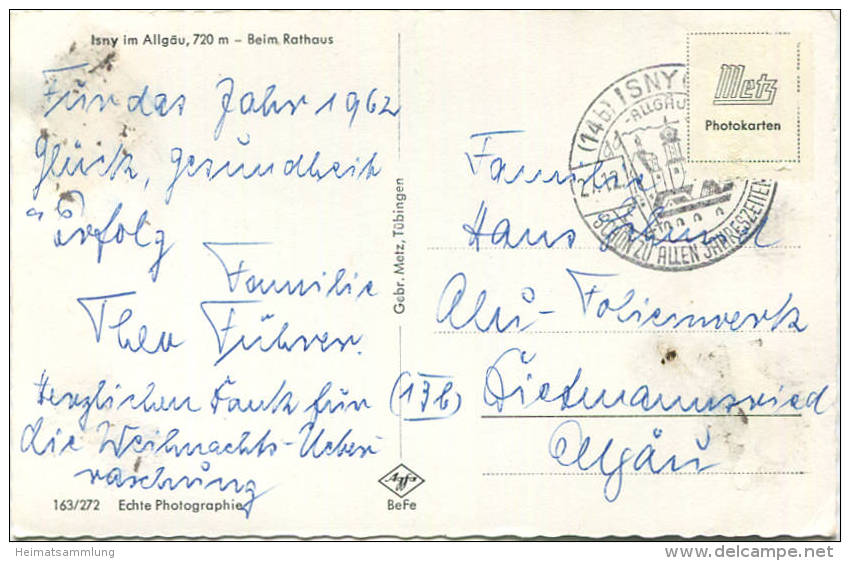 Isny im Allgäu, 720 m – Beim Rathaus
Für das Jahr 1962
Glück, Gesundheit
u.
Erfolg
Familie
Theo Führer.
Herzlichen Dank für
die Weihnachts-Ueber-
raschung
163/272 Echte Photographie
Gebr. Metz, Tübingen
Agfa
BeFe
(14b) ISNY
ALLGÄU
SCHÖN ZU ALLEN JAHRESZEITEN
Metz
Photokarten
Familie
Hans
Alu-Folienwerk
(13b) Dietmannsried
Allgäu
Heimatsammlung
http://www.delcampe.net